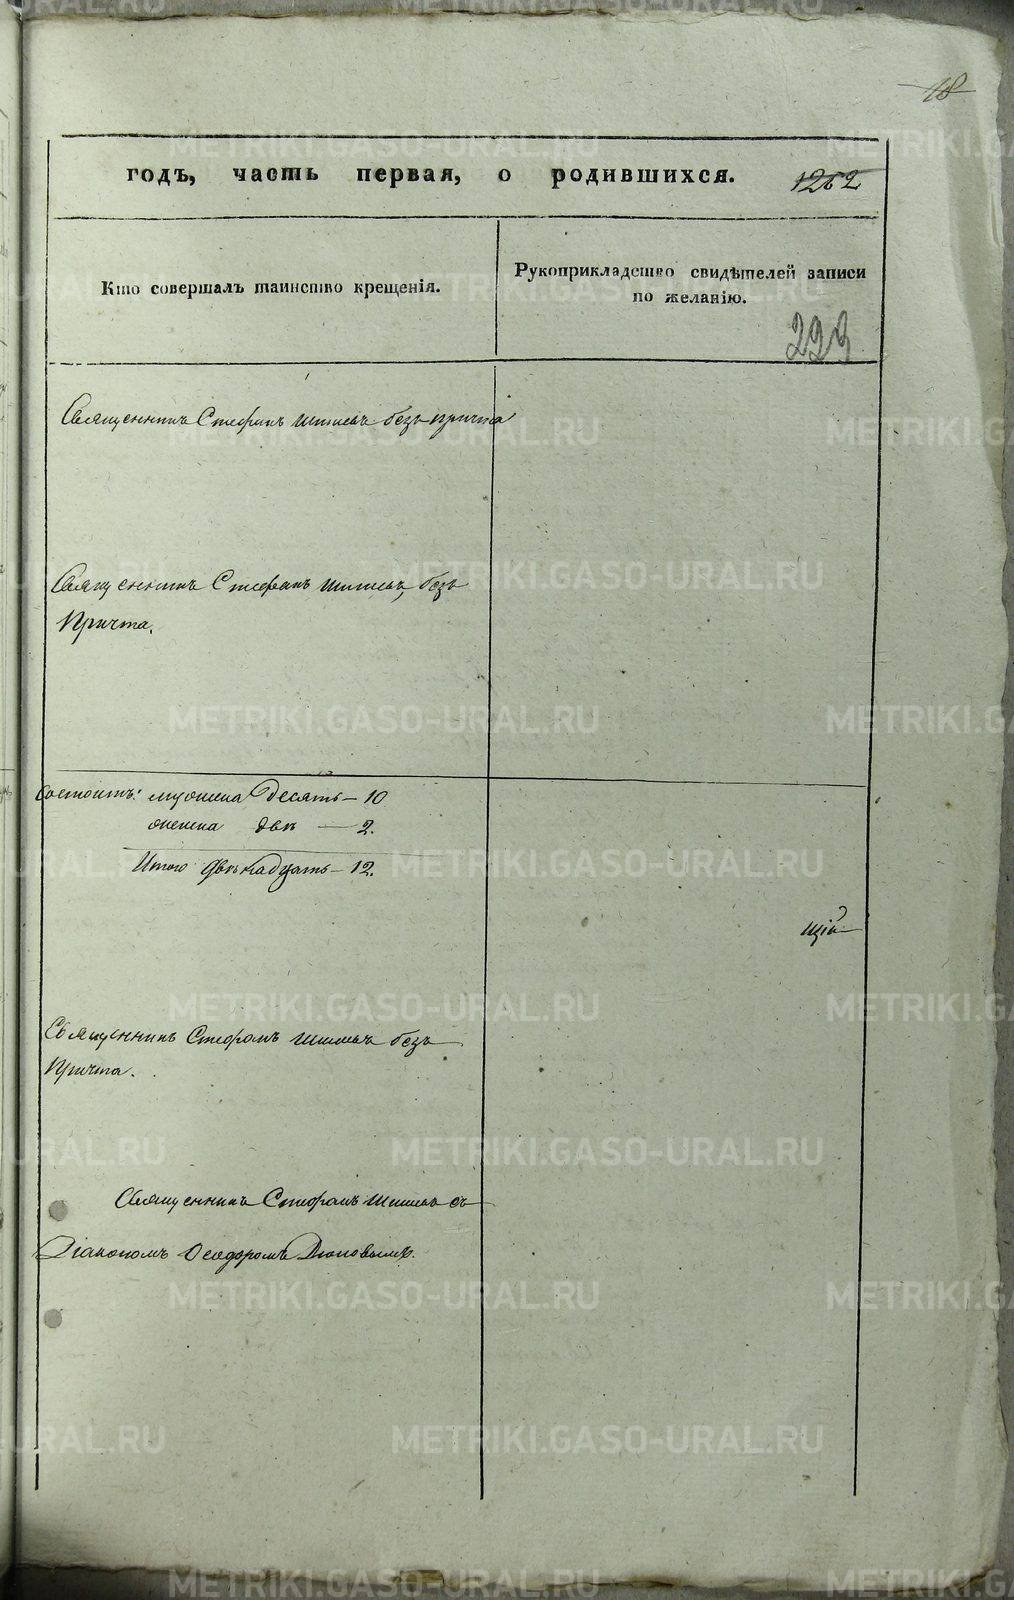 18
годъ, часть первая, о родившихся. 1262
Кто совершалъ таинство крещенія.
Рукоприкладство свидѣтелей записи
по желанію.
223
Священникъ Стефанъ Шишевъ безъ причта
Священникъ Стефанъ Шишевъ, безъ
Причта.
Состоитъ: мужеска Десять – 10
женска двѣ — 2.
Итого Двѣнадцать – 12.
щій
Священникъ Стефанъ Шишевъ безъ
Причта.
Священникъ Стефанъ Шишевъ съ
Діакономъ Ѳеодоромъ
METRIKI.GASO-URAL.RU